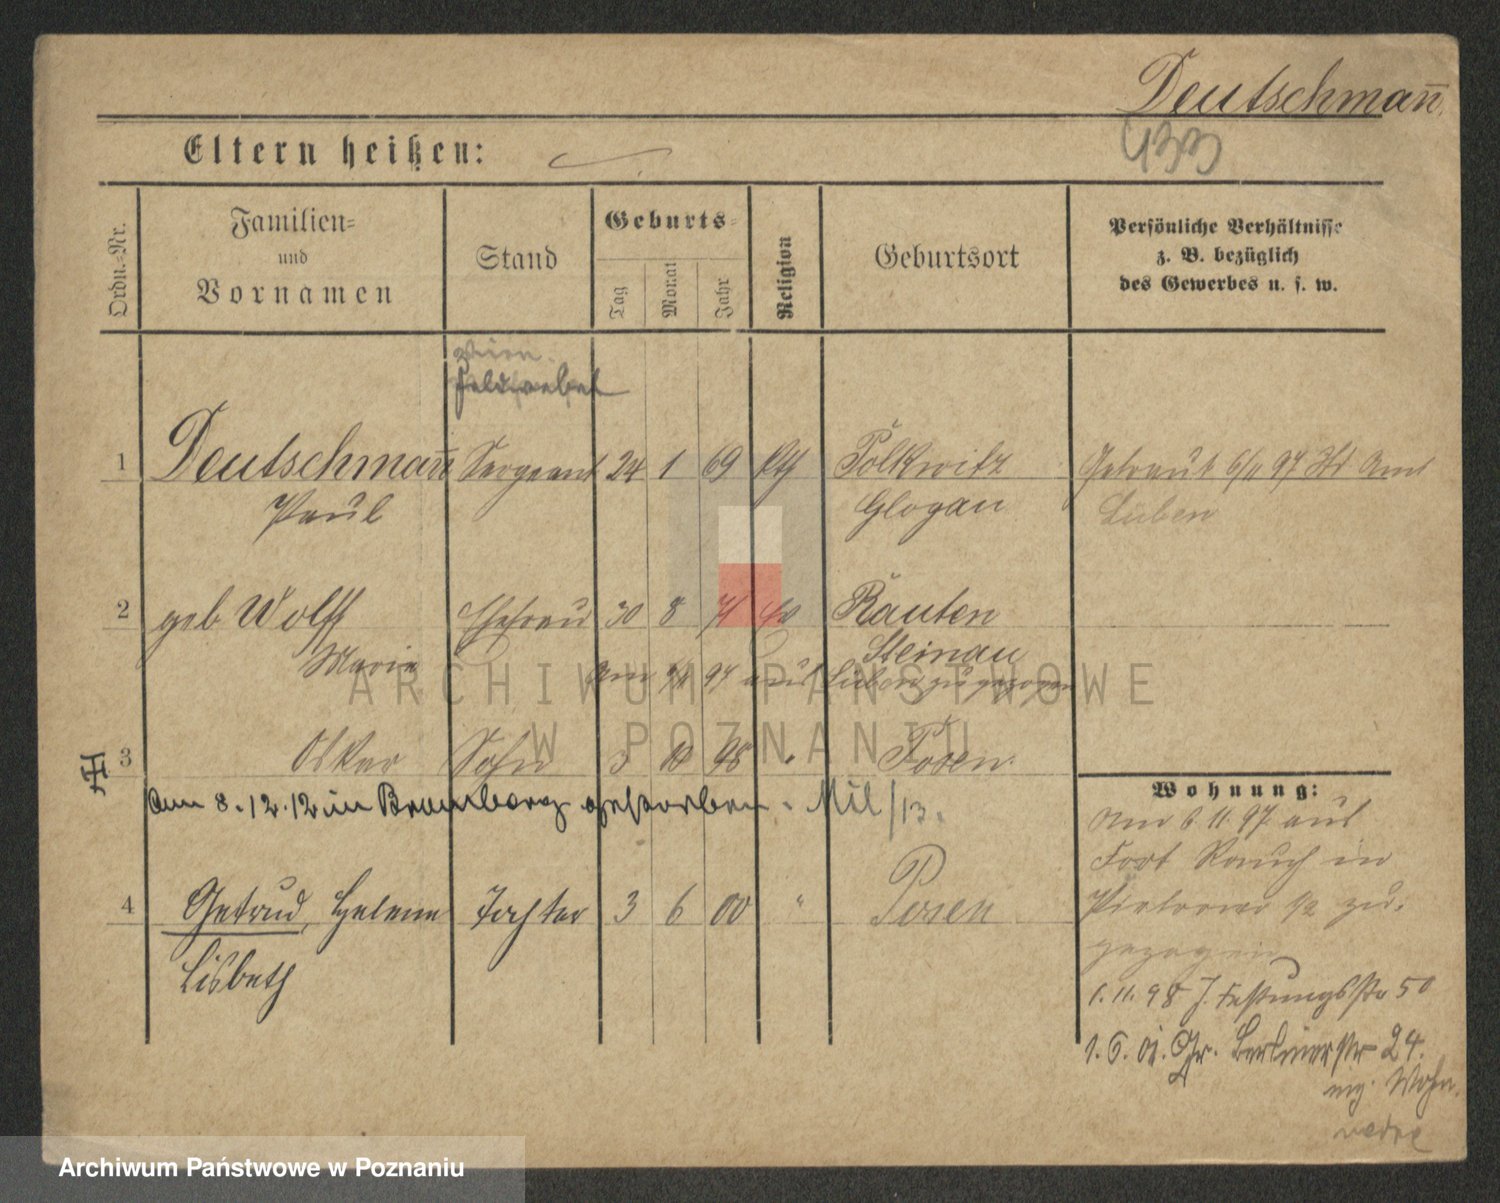 Deutschmañ
433
Eltern heißen:
Ordn.-Nr.
Familien-
und
Vornamen
Stand
Geburts-
Tag
Monat
Jahr
Religion
Geburtsort
Persönliche Verhältnisse
z. B. bezüglich
des Gewerbes u. s. w.
Feldwebel
1 Deutschmañ Sergeant 24 1 69 kth Polkwitz Getraut 6/11 97 Amt
Paul Glogau Lüben
2 geb Wolff Ehefrau 30 8 71 ev Rauten
Marie Steinau
Am 9/11 97 aus Lüben zugezogen
3 Oskar Sohn 3 10 98 " Posen
Am 8.12.12 in Bromberg gestorben. Mil/13.
4 Getrud, Helene Tochter 3 6 00 " Posen
Lisbeth
Wohnung:
Am 6.11.97 aus
Fort Rauch in
zu-
gezogen
1.11.98 J. Festungsstr 50
1.6.01. Gr. Berlinerstr 24.
Wohn.
ARCHIWUM PAŃSTWOWE
W POZNANIU
Archiwum Państwowe w Poznaniu